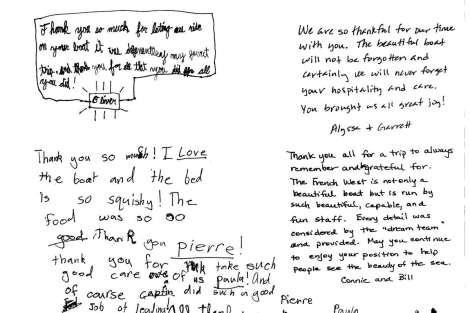 Thank you so much for leting us ride
on your boat it was
trip. and thank you for all that you did for all
you did!
Oliver
We are so thankful for our time
with you. The beautiful boat
will not be forgotten and
certainly we will never forget
your hospitality and care.
You brought us all great joy!
Alyssa + Garrett
Thank you so much! I Love
the boat and the bed
Is so squishy! The
food was so so
good. Thank you pierre!
thank you for take such
good care of us paula! And
of course captin did such a good
job of leading us
Thank you all for a trip to always
remember and grateful for.
The French West is not only a
beautiful boat but is run by
such beautiful, capable, and
fun staff. Every detail was
considered by the "dream team"
and provided. May you continue
to enjoy your position to help
people see the beauty of the sea.
Connie and Bill
Pierre
Paula